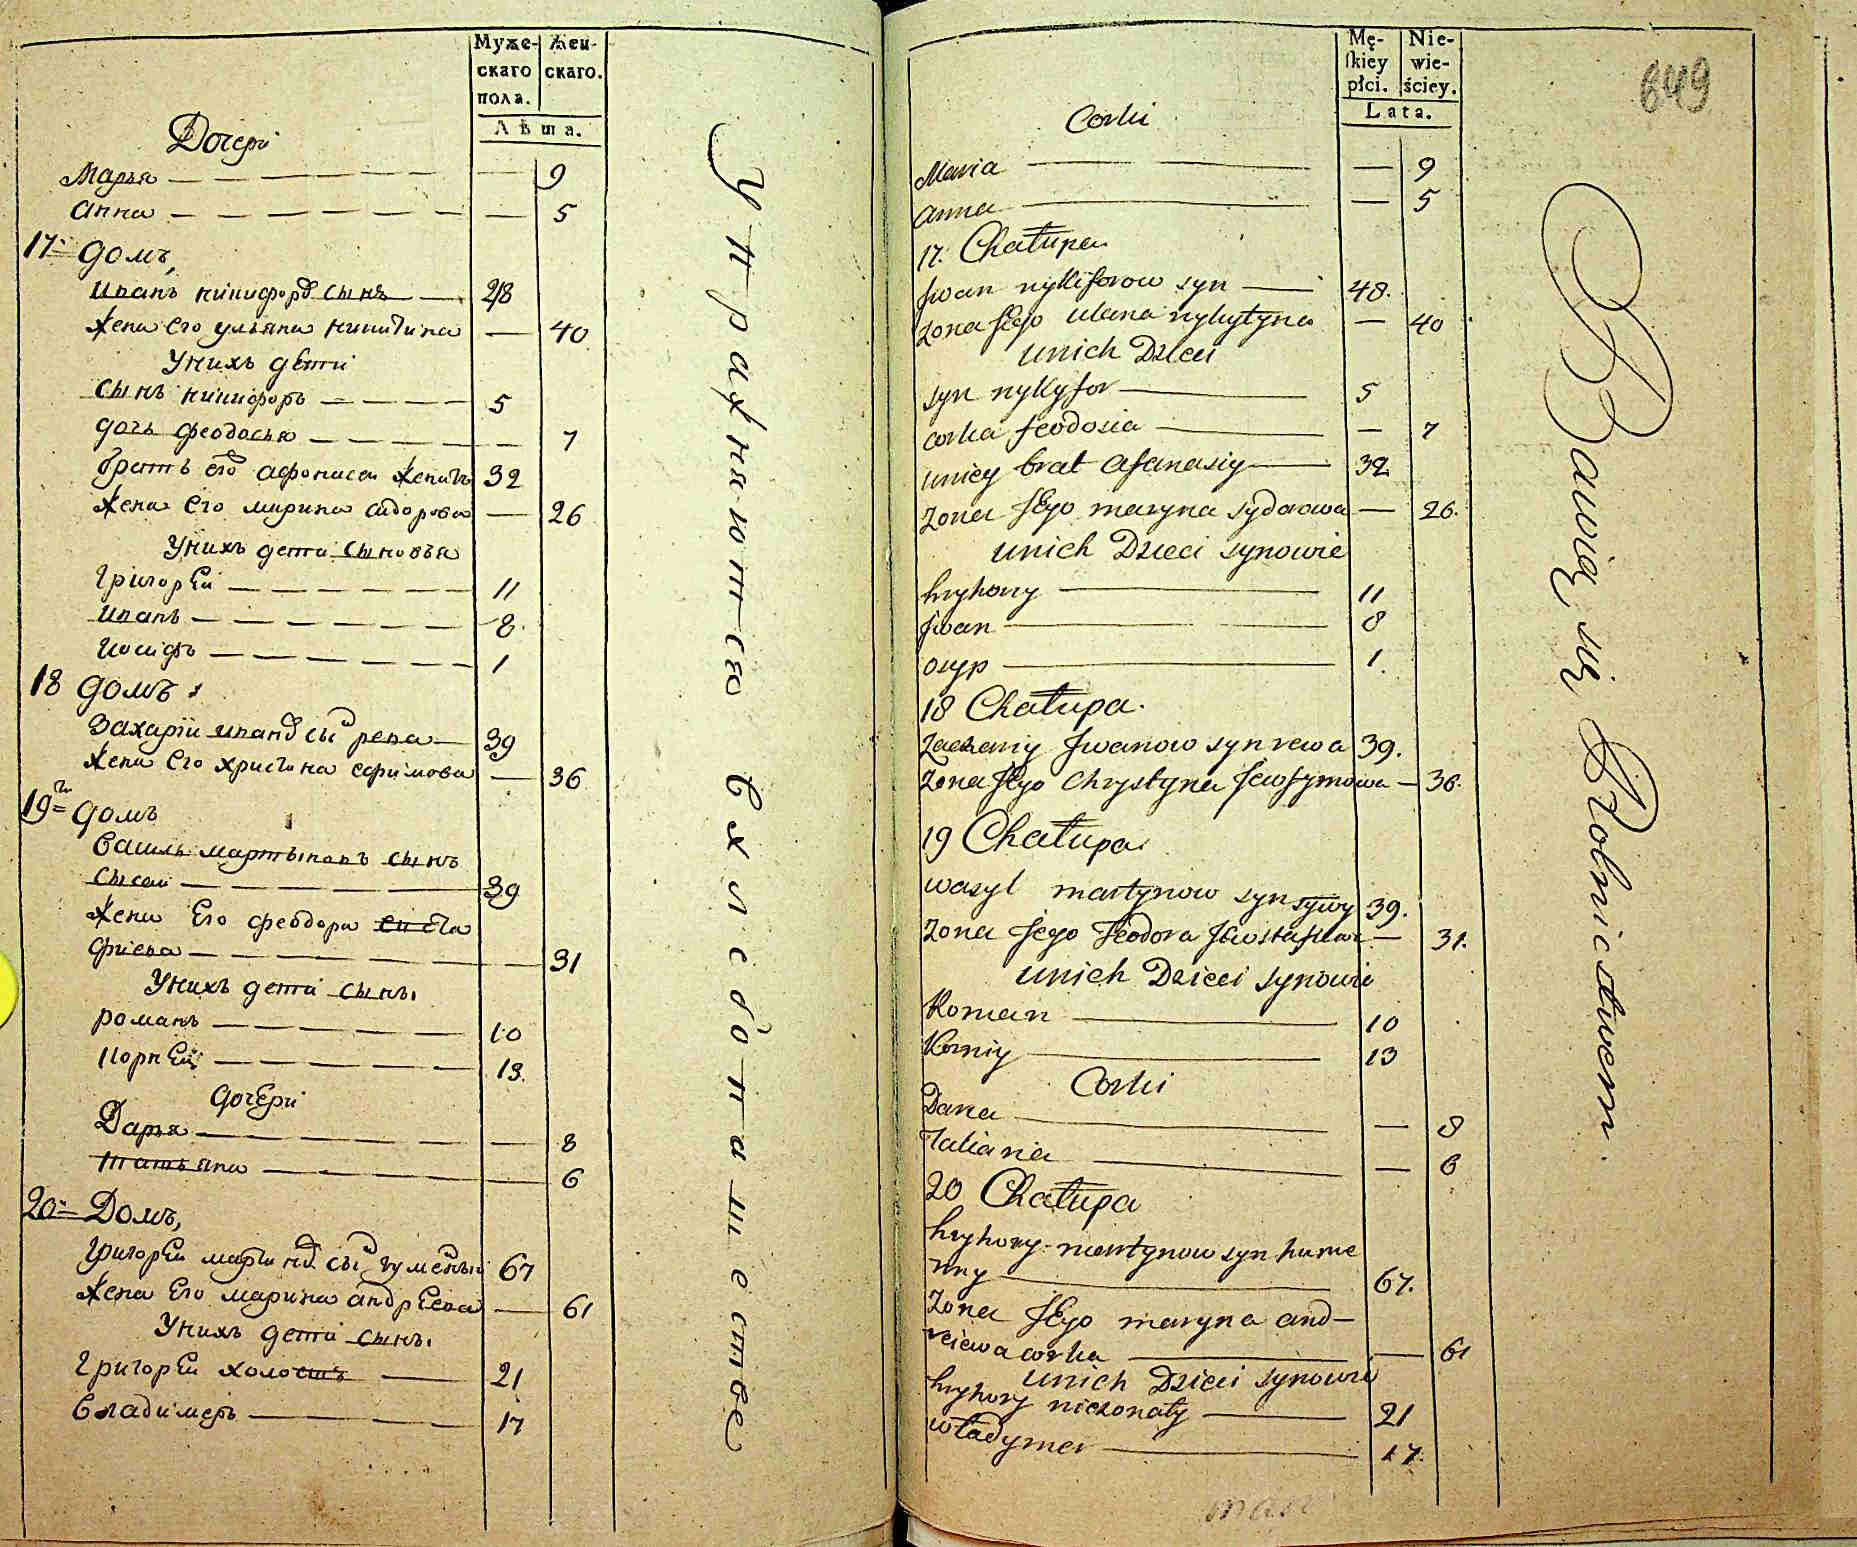 Муже-
скаго
пола.
Жен-
скаго.
Лѣта.
Дочери
Марья — — 9
Анна — — 5
17й домъ,
Иванъ никифоровъ сынъ — 48
Жена его ульяна никитина — 40
Унихъ дети
сынъ никифоръ — 5
дочь феодосья — — 7
братъ его афонасей женатъ 32
Жена его марина сидорова — 26
Унихъ дети сыновья
Григорей — 11
Иванъ — 8
Иосифъ — 1
18 домъ
Захарiй ивановъ сынъ рева — 39
Жена его христина ефимова — 36
19й домъ
Василь мартыновъ сынъ
сысай — 39
Жена его феодора евста
фиева — — 31
Унихъ дети сынъ
романъ — 10
Корней — 13
дочери
Дарья — — 8
татьяна — — 6
20й Домъ,
Григорей мартиновъ сынъ гуменный 67
Жена его марина андреева — 61
Унихъ дети сынъ
Григорей холостъ — 21
Владимеръ — 17
Упражняются в хлебопашестве
Mę-
skiey
płci.
Nie-
wie-
ściey.
Lata.
649
Corki
Maria — — 9
anna — — 5
17. Chałupa
Jwan nykiforow syn — 48.
Zona Jego ulana nykytyna — 40
unich Dzieci
syn nykyfor — 5
corka feodosia — — 7
uniey brat afanasiy — 32
Zona JEgo maryna sydorowa — 26.
unich Dzieci synowie
hryhory — 11
Jwan — 8
osyp — 1.
18 Chałupa.
Zachariy Jwanow syn rewa 39.
Zona JEgo Chrystyna Jewfymowa — 36.
19 Chałupa
wasyl martynow syn sywy 39.
Zona Jego Feodora — 31.
unich Dzieci synowie
Roman — 10
Korniy — 13
Corki
Daria — — 8
Tatiana — — 6
20 Chałupa
hryhory martynow syn hume
nny — 67.
Zona JEgo maryna and—
reiewa corka — — 61
unich Dzieci synowie
hryhory niezonaty — 21
władymer — 17.
Bawią się Rolnictwem.